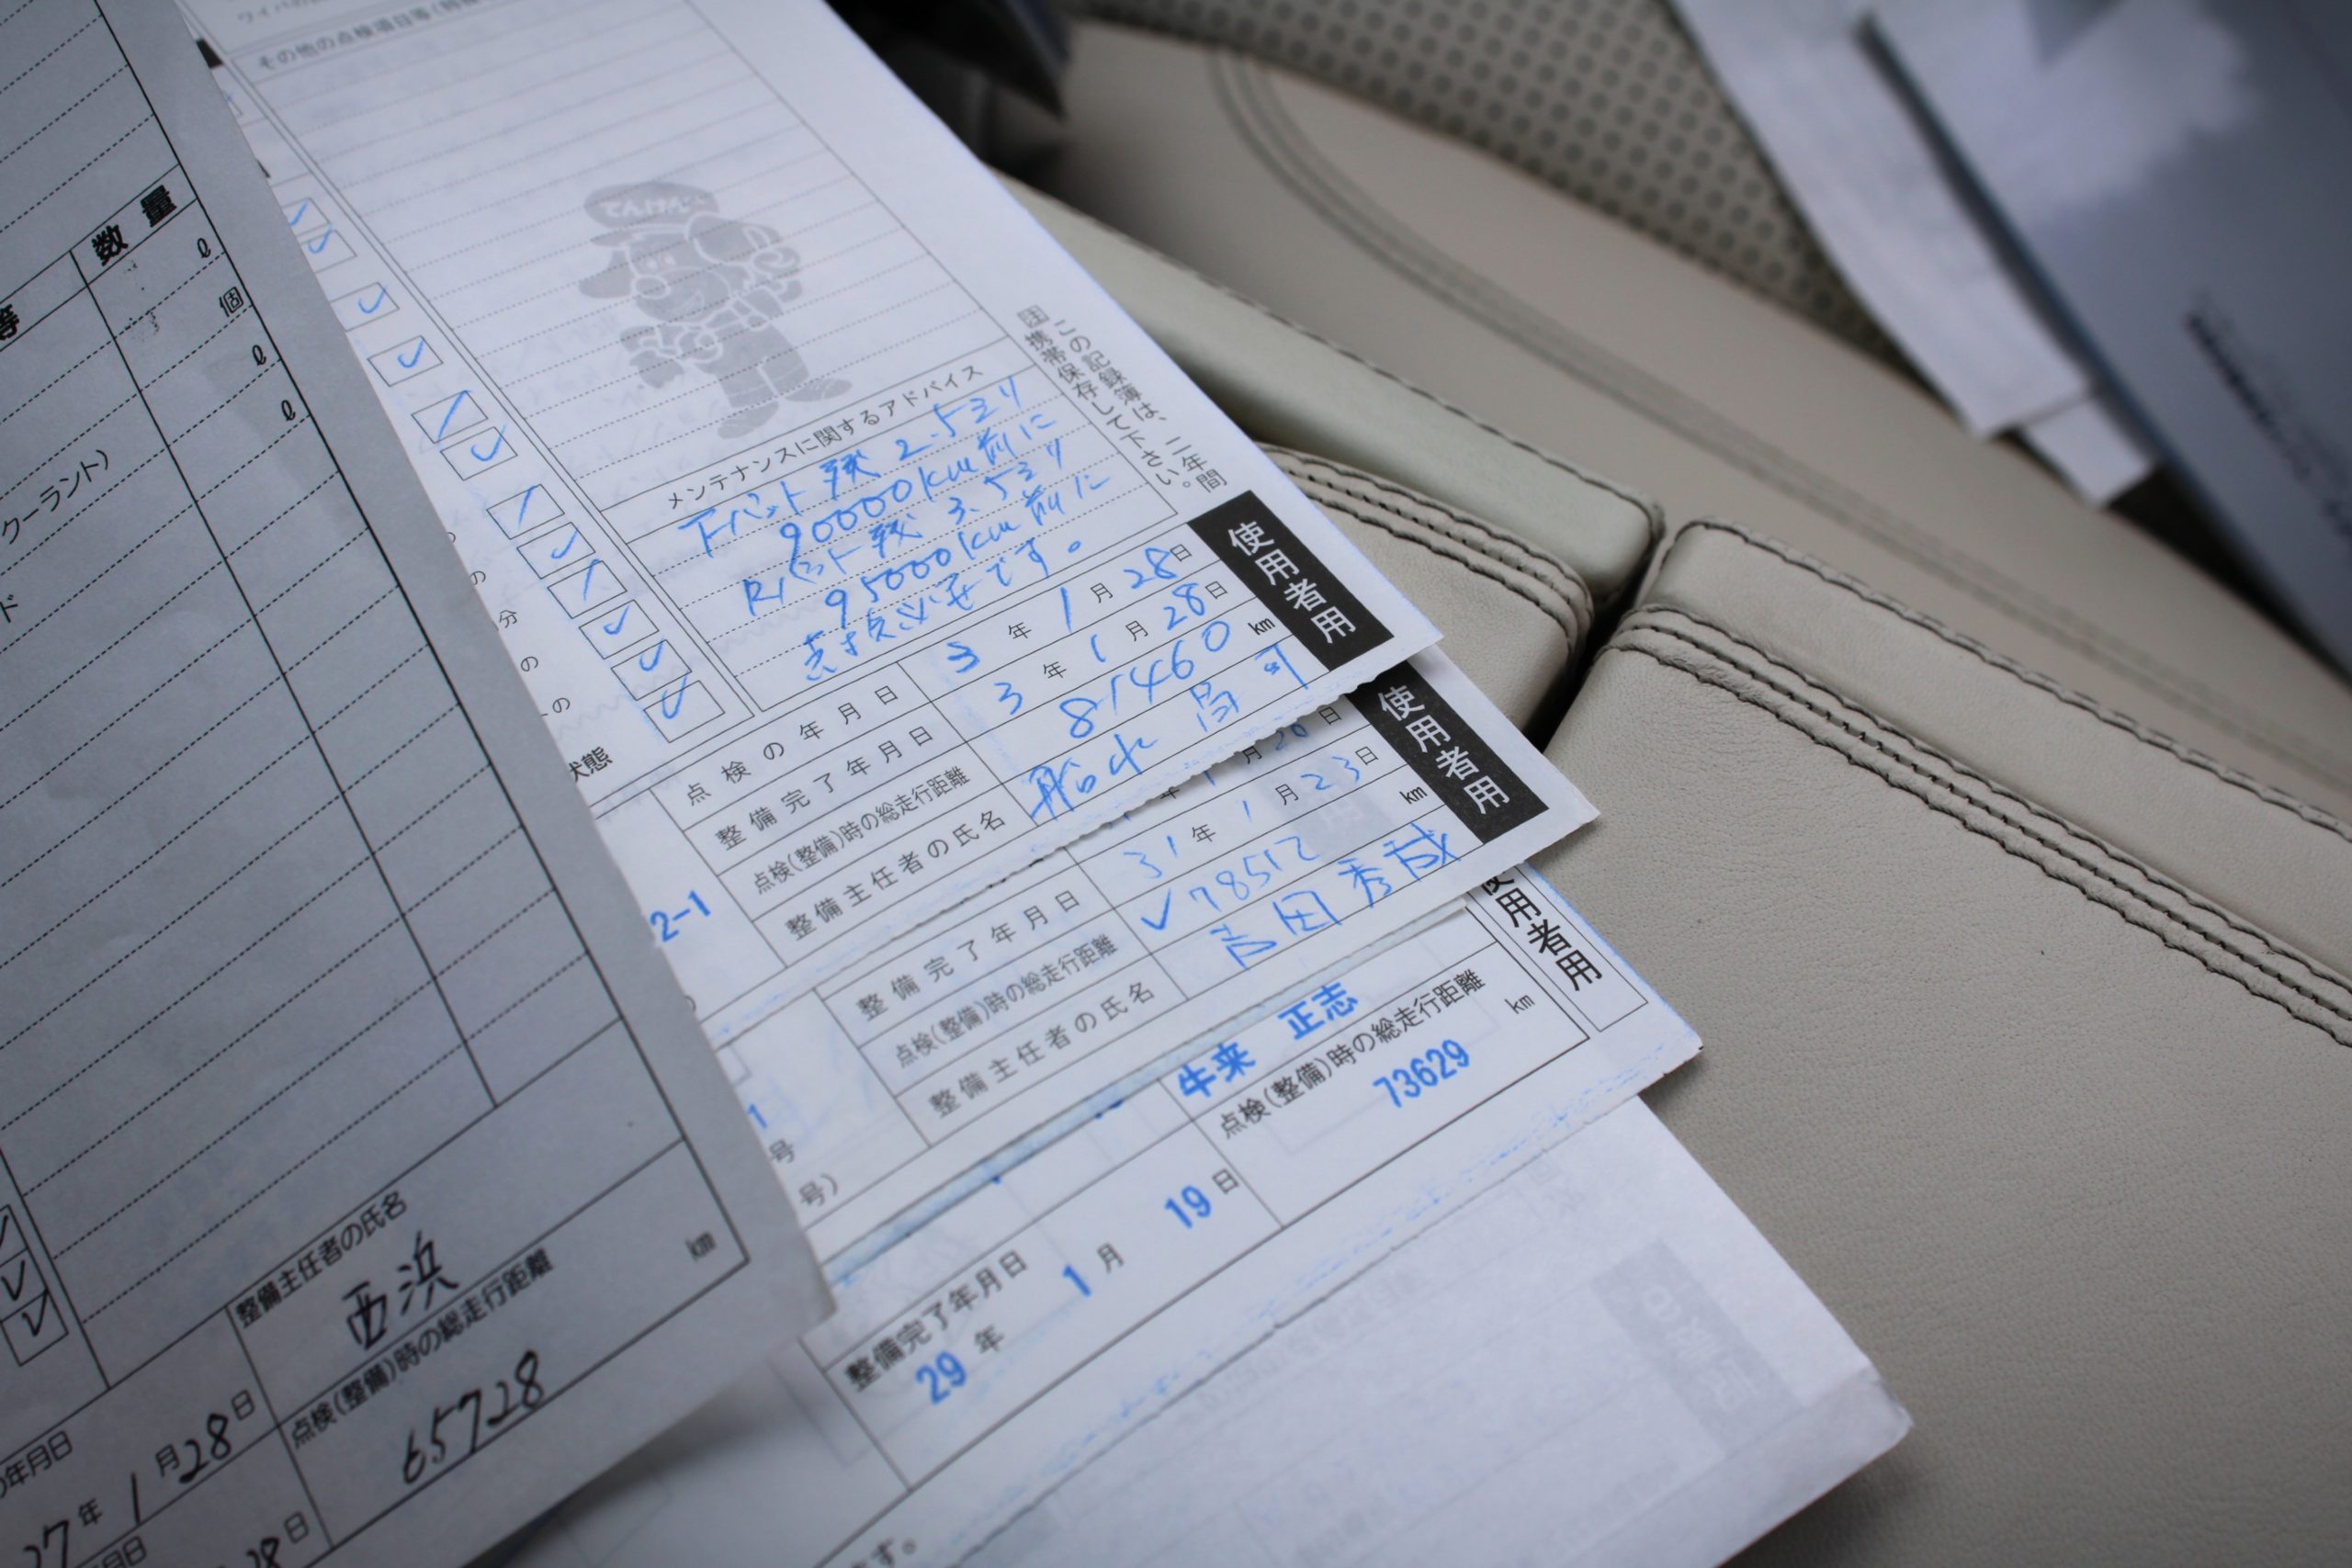 数量
ℓ
個
ℓ
ℓ
等
クーラント)
ド
整備主任者の氏名
西浜
点検(整備)時の総走行距離
65728
km
年月日
27年1月28日
28日
その他の点検項目等
てんけんくん
メンテナンスに関するアドバイス
Fパット残 2.5ミリ
90000km前に
Rパット残 3.5ミリ
95000km前に
点検必要です。
注 この記録簿は、二年間
携帯保存して下さい。
使用者用
分
の
の
状態
2-1
点検の年月日
3年1月28日
整備完了年月日
3年1月28日
点検(整備)時の総走行距離
81460 km
整備主任者の氏名
船水
使用者用
整備完了年月日
31年1月23日
点検(整備)時の総走行距離
✓78512 km
整備主任者の氏名
吉田秀成
使用者用
1
号
号)
牛来 正志
点検(整備)時の総走行距離
73629 km
整備完了年月日
29年1月19日
ます。